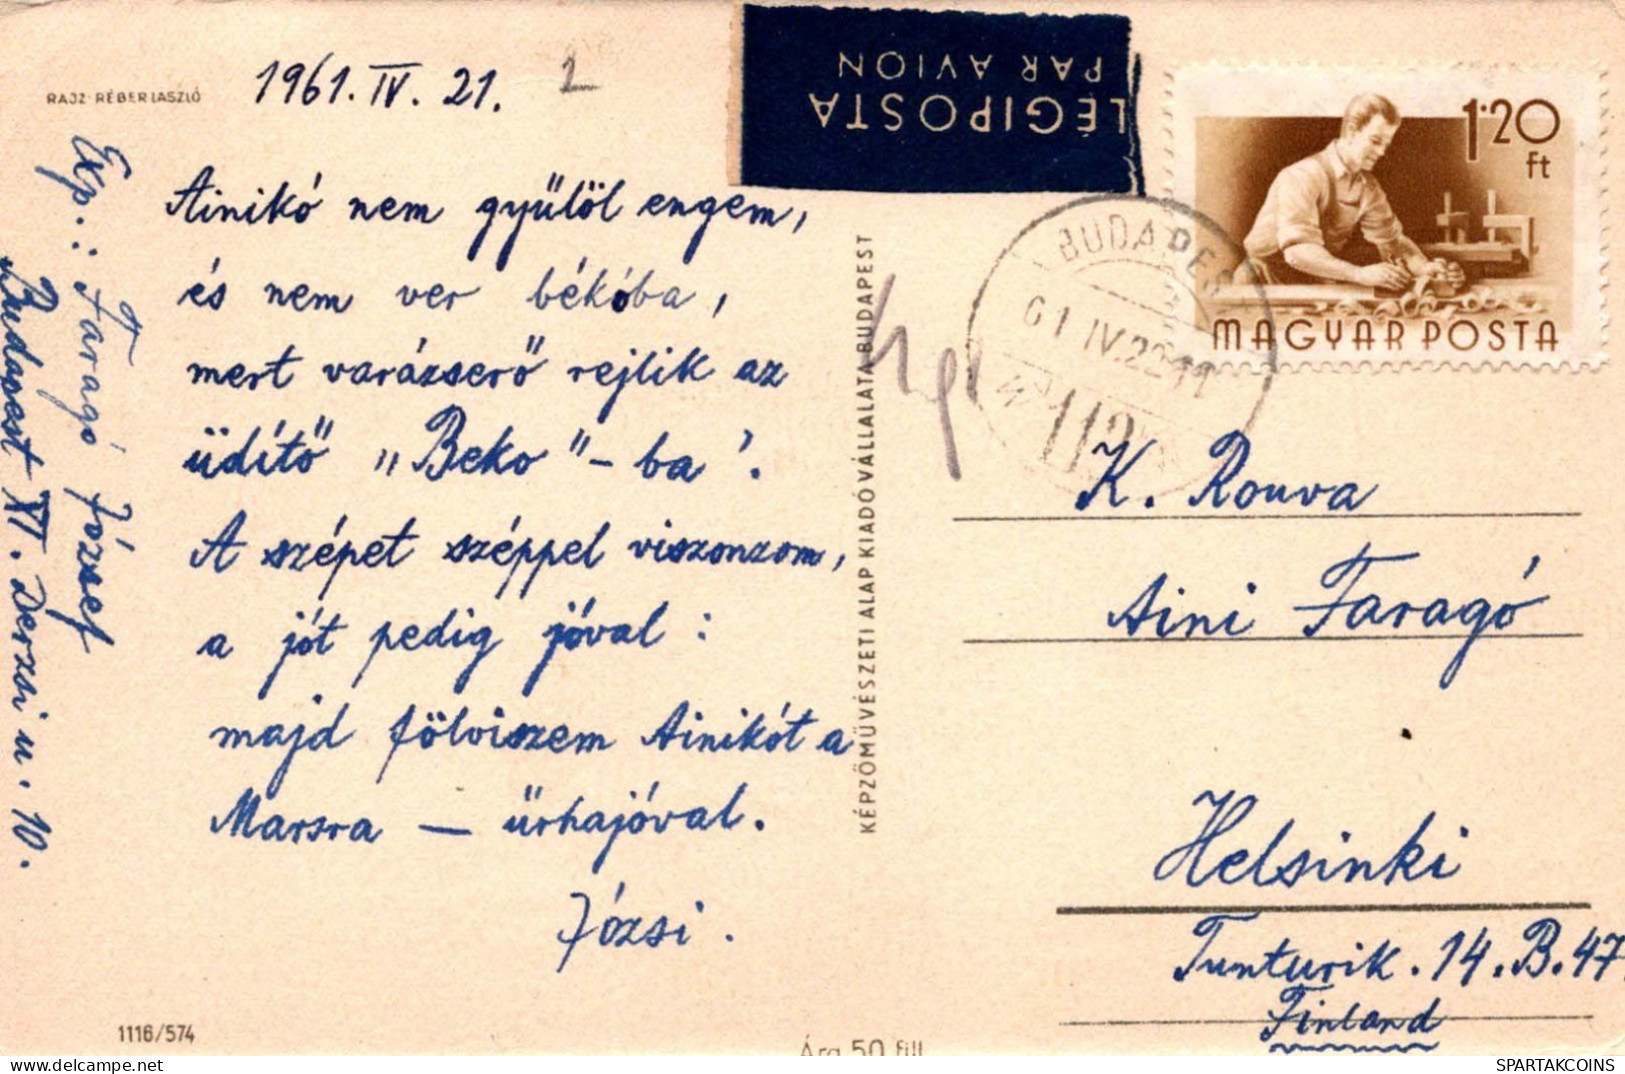 RAJZ: RÉBER LÁSZLÓ
1961. IV. 21.
Ainikó nem gyűlöl engem,
és nem ver békóba,
mert varázserő rejlik az
üdítő „Beko"-ba'.
A szépet széppel viszonzom,
a jót pedig jóval:
majd fölviszem Ainikót a
Marsra — űrhajóval.
Józsi.
Exp.: Faragó József
Budapest XI. Derzsi u. 10.
1116/574
KÉPZŐMŰVÉSZETI ALAP KIADÓVÁLLALATA BUDAPEST
Ára 50 fill
LÉGIPOSTA
PAR AVION
1·20
ft
MAGYAR POSTA
BUDAPEST
61 IV. 22-11
112
K. Rouva
Aini Faragó
Helsinki
Tunturik. 14. B. 47
Finland
SPARTAKCOINS
delcampe.net